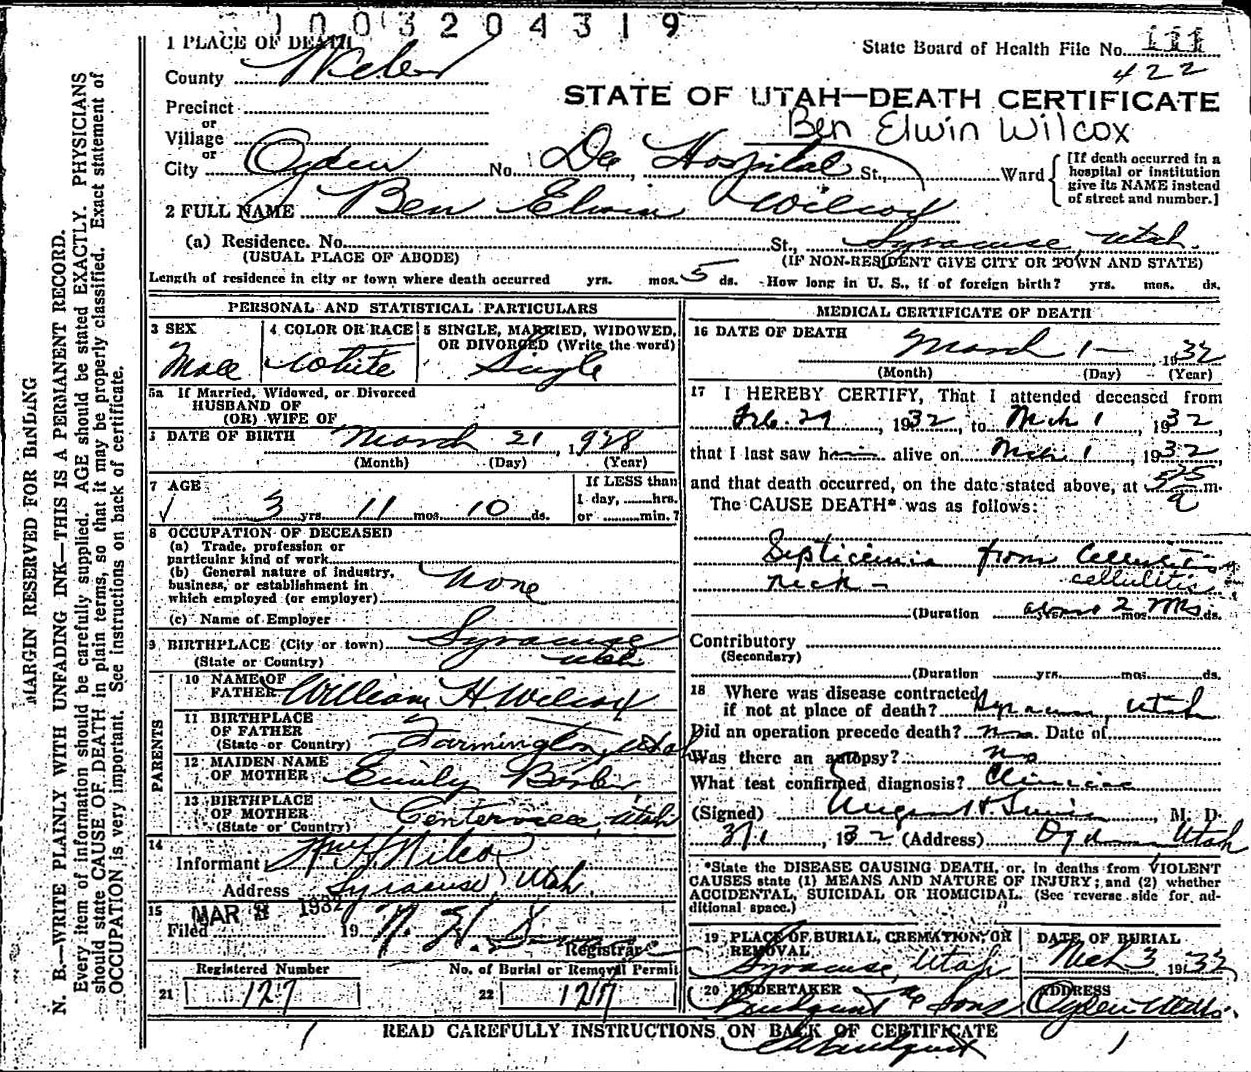 1003204319
1 PLACE OF DEATH
State Board of Health File No. 111
County Weber
422
STATE OF UTAH—DEATH CERTIFICATE
Precinct
or
Village
Ben Elwin Wilcox
or
City Ogden No. Dee Hospital St., Ward
[If death occurred in a
hospital or institution
give its NAME instead
of street and number.]
2 FULL NAME Ben Elwin Wilcox
(a) Residence. No. St., Syracuse, Utah.
(USUAL PLACE OF ABODE) (IF NON-RESIDENT GIVE CITY OR TOWN AND STATE)
Length of residence in city or town where death occurred yrs. mos. 5 ds. - How long in U. S., if of foreign birth? yrs. mos. ds.
PERSONAL AND STATISTICAL PARTICULARS
3 SEX
Male
4 COLOR OR RACE
White
5 SINGLE, MARRIED, WIDOWED,
OR DIVORCED (Write the word)
Single
5a If Married, Widowed, or Divorced
HUSBAND OF
(OR) WIFE OF
DATE OF BIRTH March 21, 1928
(Month) (Day) (Year)
7 AGE
3 yrs. 11 mos. 10 ds.
If LESS than
1 day, hrs.
or min.?
8 OCCUPATION OF DECEASED
(a) Trade, profession or
particular kind of work
(b) General nature of industry,
business, or establishment in
which employed (or employer) None
(c) Name of Employer
9 BIRTHPLACE (City or town) Syracuse
(State or Country) Utah
PARENTS
10 NAME OF
FATHER William H. Wilcox
11 BIRTHPLACE
OF FATHER
(State or Country) Farmington, Utah
12 MAIDEN NAME
OF MOTHER Emily
13 BIRTHPLACE
OF MOTHER
(State or Country) Centerville, Utah
14
Informant Wm H. Wilcox
Address Syracuse, Utah.
15 MAR 1932
Filed 19
Registrar
Registered Number
21 127
No. of Burial or Removal Permit
22 127
MEDICAL CERTIFICATE OF DEATH
16 DATE OF DEATH
March 1 — 1932
(Month) (Day) (Year)
17 I HEREBY CERTIFY, That I attended deceased from
Feb. 29, 1932, to Mch 1, 1932,
that I last saw him alive on Mch 1, 1932,
and that death occurred, on the date stated above, at 525 a m.
The CAUSE DEATH* was as follows:
Septicemia from Cellulitis
neck — cellulitis
(Duration about 2 mos ds.
Contributory
(Secondary)
(Duration yrs. mos. ds.
18 Where was disease contracted
if not at place of death? Syracuse, Utah
Did an operation precede death? No Date of
Was there an autopsy? No
What test confirmed diagnosis? Clinical
(Signed) M. D.
3/1, 1932 (Address) Ogden Utah
*State the DISEASE CAUSING DEATH, or, in deaths from VIOLENT
CAUSES state (1) MEANS AND NATURE OF INJURY; and (2) whether
ACCIDENTAL, SUICIDAL OR HOMICIDAL. (See reverse side for ad-
ditional space.)
19 PLACE OF BURIAL, CREMATION, OR
REMOVAL
Syracuse, Utah
DATE OF BURIAL
Mch 3 1932
20 UNDERTAKER
& Sons
ADDRESS
Ogden Utah.
READ CAREFULLY INSTRUCTIONS ON BACK OF CERTIFICATE
MARGIN RESERVED FOR BINDING
N. B.—WRITE PLAINLY WITH UNFADING INK—THIS IS A PERMANENT RECORD.
Every item of information should be carefully supplied. AGE should be stated EXACTLY. PHYSICIANS
should state CAUSE OF DEATH in plain terms, so that it may be properly classified. Exact statement of
OCCUPATION is very important. See instructions on back of certificate.